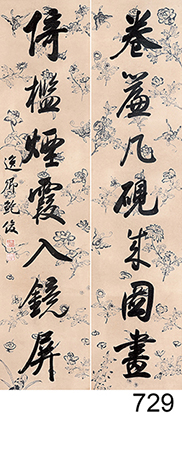 卷簾几硯成圖畫
倚檻煙霞入鏡屏
逸卿鮑俊
729